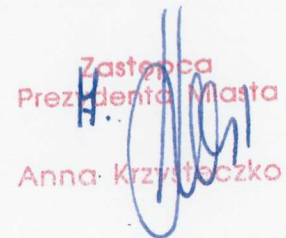 Zastępca
Prezydenta Miasta
Anna Krzysteczko